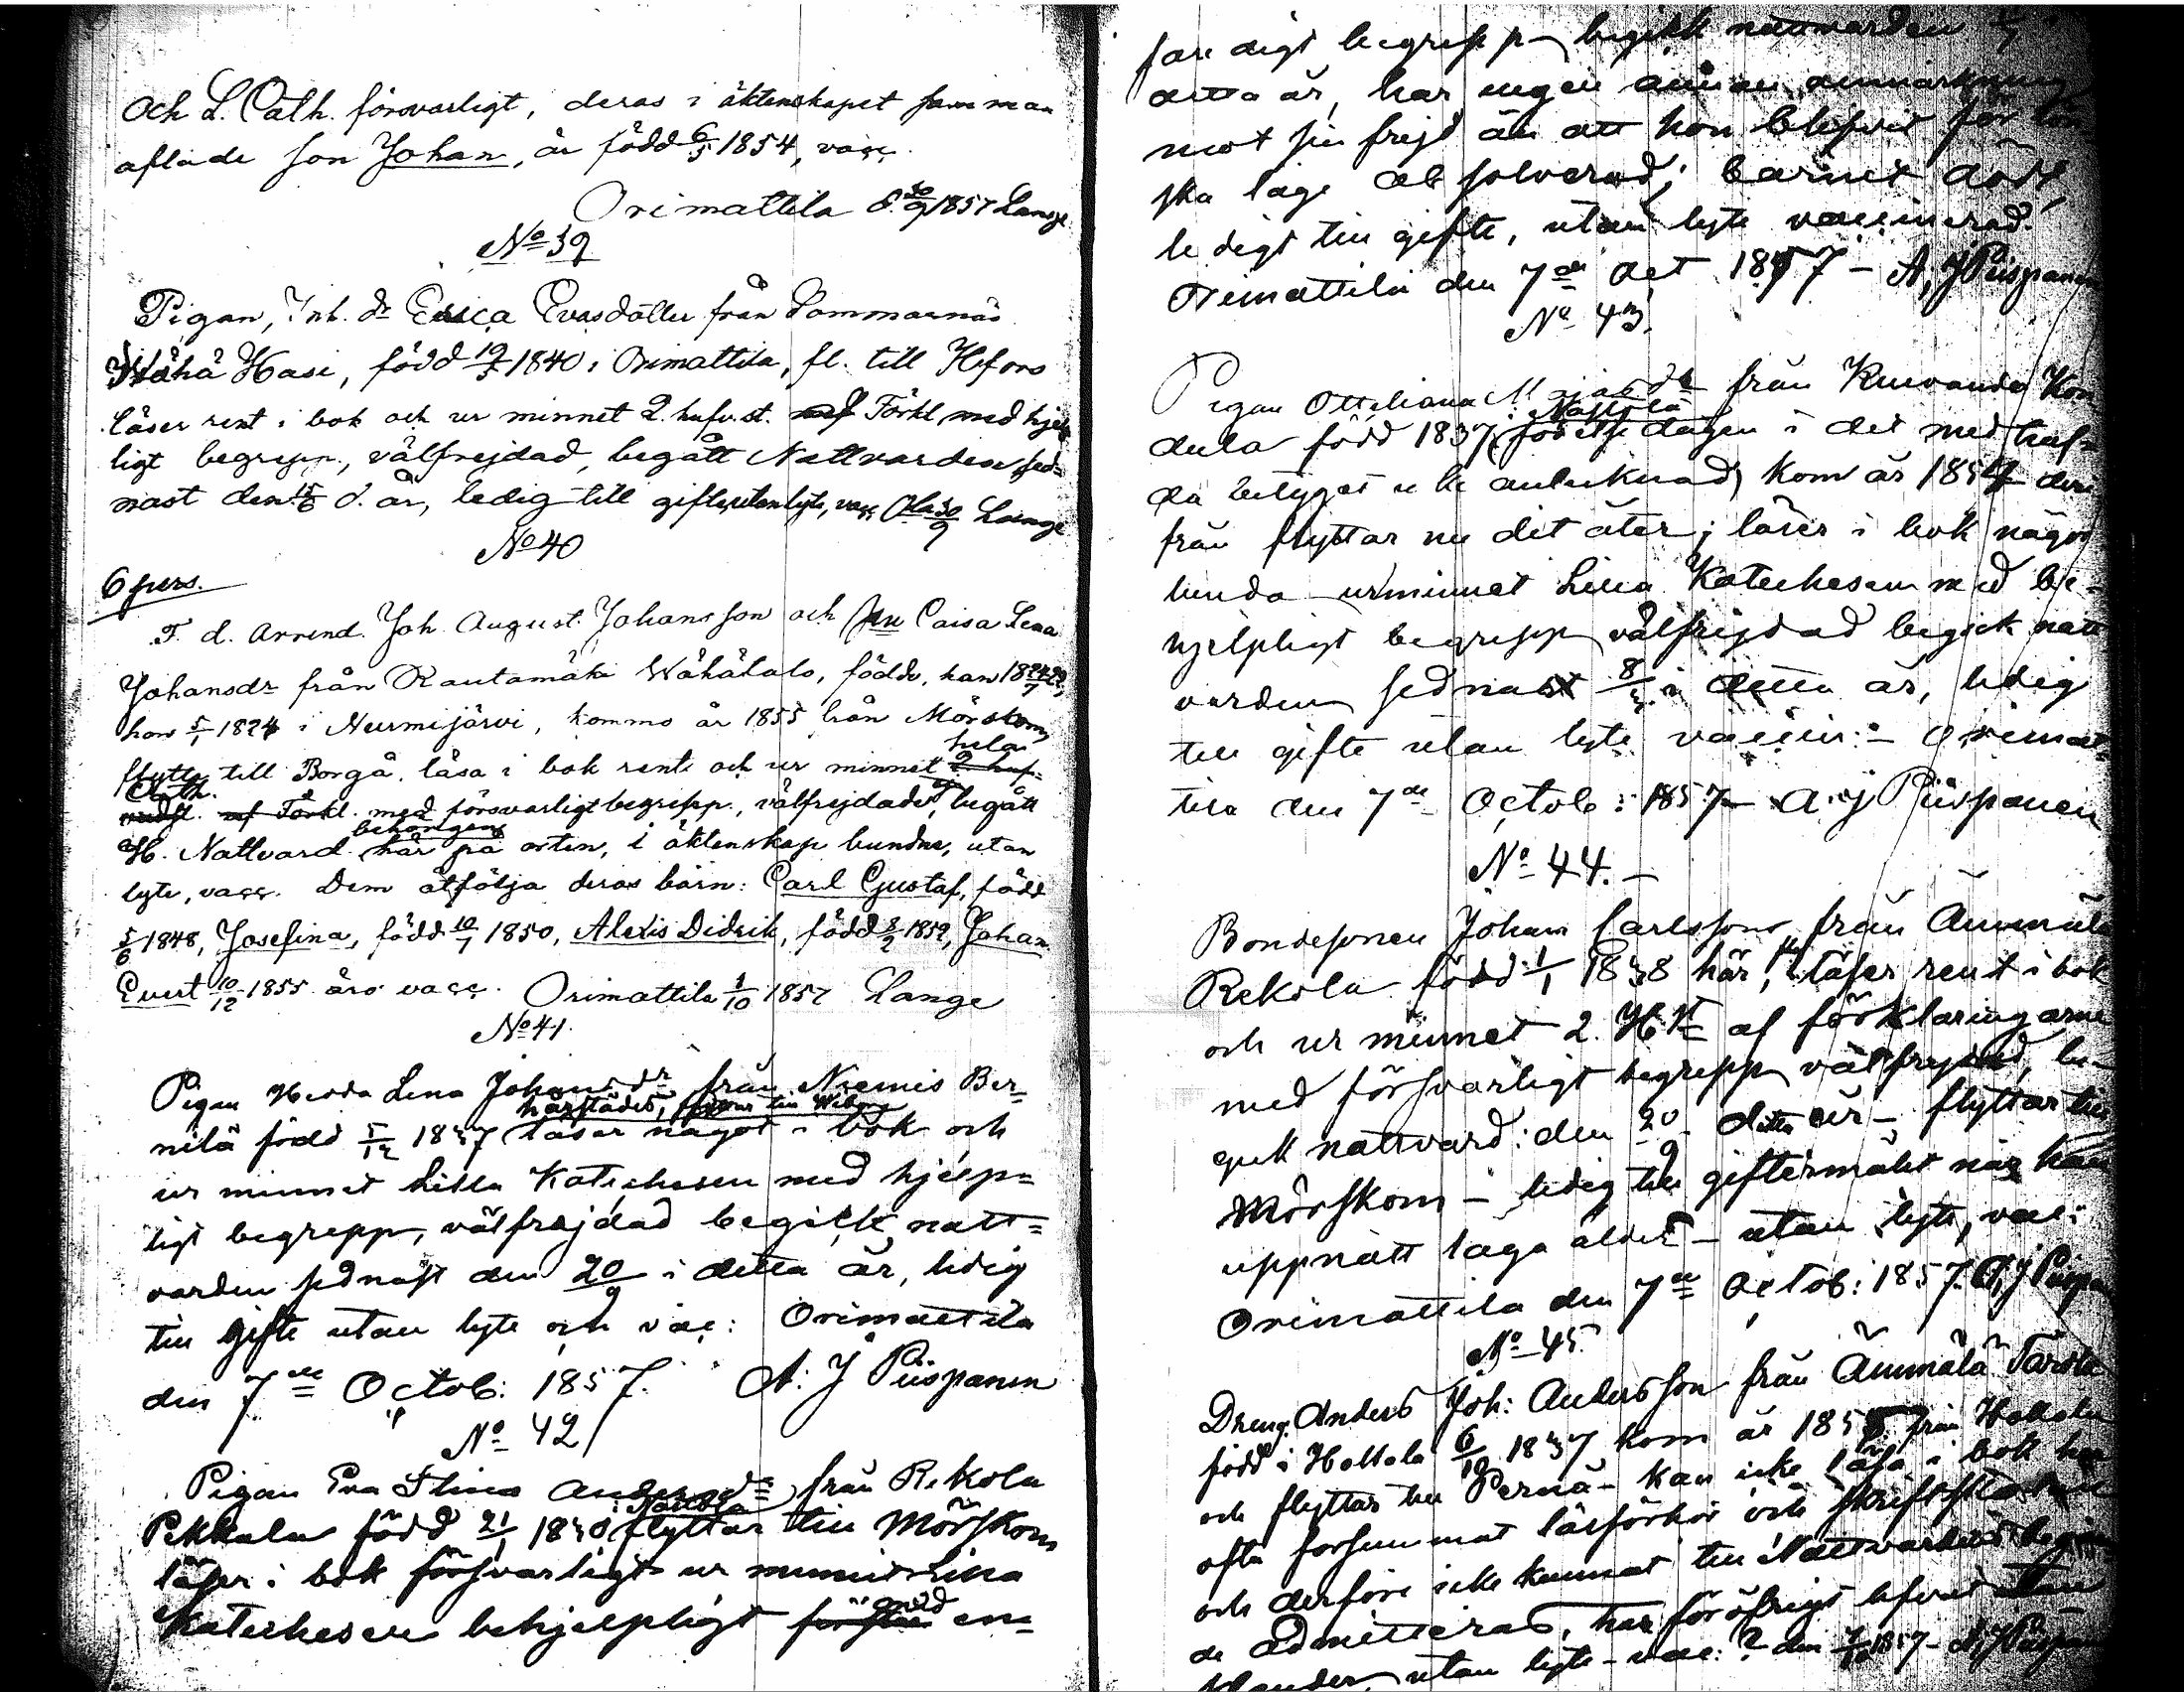 och L. Cath. försvarligt, deras i äktenskapet samman
aflade son Johan, är född 6/5 1854, vacc.
Orimattila d. 30/9 1857 Lange
No 39
Pigan, Inh. dr Erica Evasdotter från Sommarnäs
Wähä Hasi, född 19/5 1840 i Orimattila, fl. till Hfors
läser rent i bok och ur minnet 2. hufv. st. Förkl. med hjelp
ligt begrepp, välfrejdad, begått Nattvarden sed=
nast den 15/6 d. år, ledig till gifte, utan lyte, vacc. Ola 30/9 Lange
No 40
6 pers.
F. d. Arrend. Joh. August Johansson och hu Caisa Lena
Johansdr från Rautamäki Wähätalo, födde, han 18
hon 5/1 1824 i Nurmijärvi, kommo år 1855 från Mörskom,
flytta till Borgå, läsa i bok rent och ur minnet hela
Cath. med försvarligt begrepp, välfrejdade, begått
H. Nattvard behörigen här på orten, i äktenskap bundne, utan
lyte, vacc. Dem åtfölja deras barn: Carl Gustaf, född
5/6 1848, Josefina, född 10/1 1850, Alexis Didrik, född 8/2 1852, Johan
Evert 10/12 1855 äro vacc. Orimattila 1/10 1857 Lange
No 41.
Pigan Hedda Lena Johansdr från Niemis Ber=
härstädes, flyttar till Wiborg
nilä född 5/12 1837 läser något i bok och
ur minnet Lilla Katechesen med hjelp=
ligt begrepp, välfrejdad begick natt=
varden sednast den 20/9 i detta år, ledig
till gifte utan lyte och vac: Orimattila
den 7de Octob: 1857. A: J Piispanen
No 42
Pigan Eva Stina Andersdr från Rekola
Pekkala född 21/1 1830 flyttar till Mörskom
läser i bok försvarligt ur minnet Lilla
Katechesen behjelpligt med en=
faredigt begrepp begick nattvarden
detta år, har ingen annan anmärkning
mot sin frejd än att hon blifvit för lön
ska läge absolverad; barnet dödt,
ledigt till gifte, utan lyte vaccinerad.
Orimattila den 7de Oct 1857 - A, J Piispanen
No 43.
Pigan Ottiliana Majasdr från Kuivanda Kon
dula född 1837 födelse dagen i det medhaf=
da betyget icke antecknad, kom år 1857 der
från flyttar nu dit åter; läser i bok någor
lunda ur minnet Lilla Katechesen med be-
hjelpligt begrepp välfrejdad begick natt
varden sednast 8/3 i detta år, ledig
till gifte utan lyte vaccin:- Orimat=
tila den 7de Octob: 1857 - A: J Piispanen
No 44. -
Bondesonen Johan Carlsson från Ämmälä
Rekola född 1/1 1838 här, läser rent i bok
och ur minnet 2. H St af förklaringarne
med försvarligt begrepp välfrejdad, be-
gick nattvard: den 20/9 detta år - flyttar till
Mörskom - ledig till giftermålet när han
uppnått laga ålder - utan lyte, vac:
Orimattila den 7de Octob: 1857. A, J Piispa
No 45.
Dreng. Anders Joh: Andersson från Ämmälä
född i Hollola 6/10 1837 kom år 1855 från Hollola
och flyttar till Pernå - kan icke läsa i bok har
ofta försummat läsförhör och skriftskolan
och derföre icke kunnat till Nattvardens begå
de admitteras, har föröfrigt
utan lyte - vac: ? den 7/10 1857 - A, J Piispan